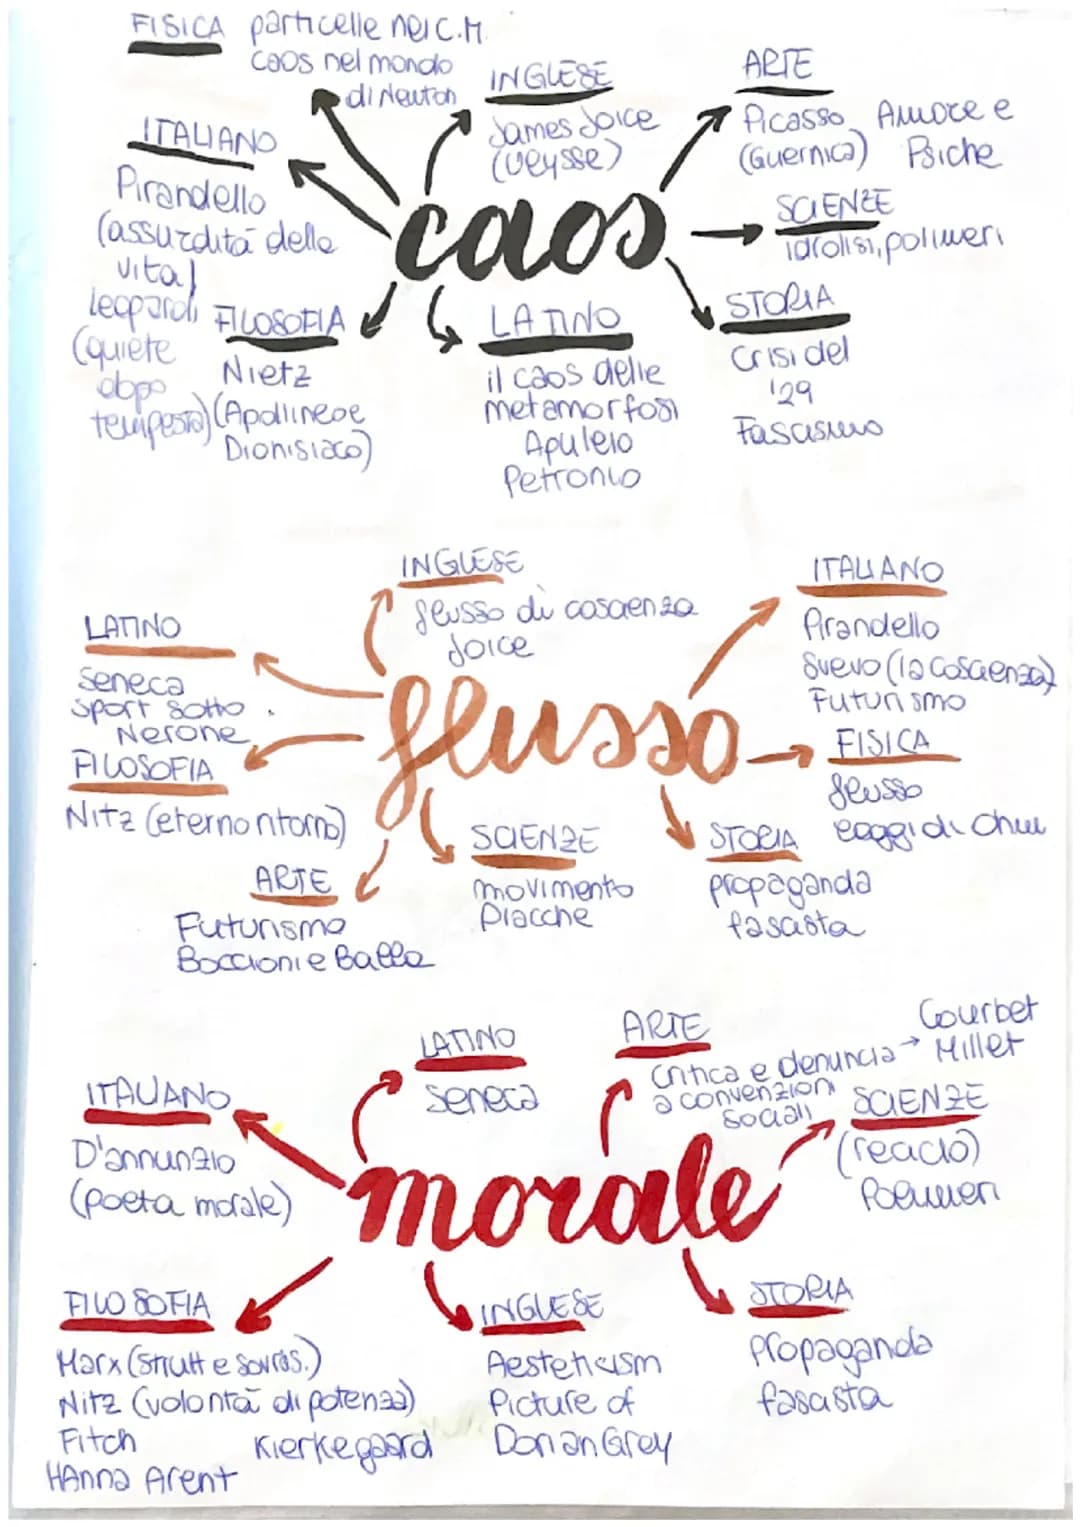 FISICA particelle nei C.M.
caos nel mondo
di Newton
INGLESE
James Joice
(Ulysse)
ARTE
Picasso Amore e
(Guernica) Psiche
ITALIANO
Pirandello
(assurdità della
vita)
Leopardi
(quiete
dopo
tempesta)
caos
SCIENZE
idrolisi, polimeri
FILOSOFIA
Nietz
(Apollineo e
Dionisiaco)
LATINO
il caos delle
metamorfosi
Apuleio
Petronio
STORIA
Crisi del
'29
Fascismo
INGLESE
flusso di coscienza
Joice
ITALIANO
Pirandello
Svevo (la coscienza)
Futurismo
LATINO
Seneca
Sport sotto
Nerone
flusso
FISICA
flusso
leggi di Ohm
FILOSOFIA
Nitz (eterno ritorno)
ARTE
Futurismo
Boccioni e Balla
SCIENZE
movimento
placche
STORIA
propaganda
fascista
LATINO
Seneca
ARTE
Critica e denuncia → Courbet
a convenzioni Millet
sociali
ITALIANO
D'annunzio
(poeta morale)
morale
SCIENZE
(reaclo)
Polimeri
FILOSOFIA
Marx (strutt e sovras.)
Nitz (volontà di potenza)
Fitch Kierkegaard
HAnna Arent
INGLESE
Aesteticism
Picture of
Dorian Grey
STORIA
Propaganda
fascista